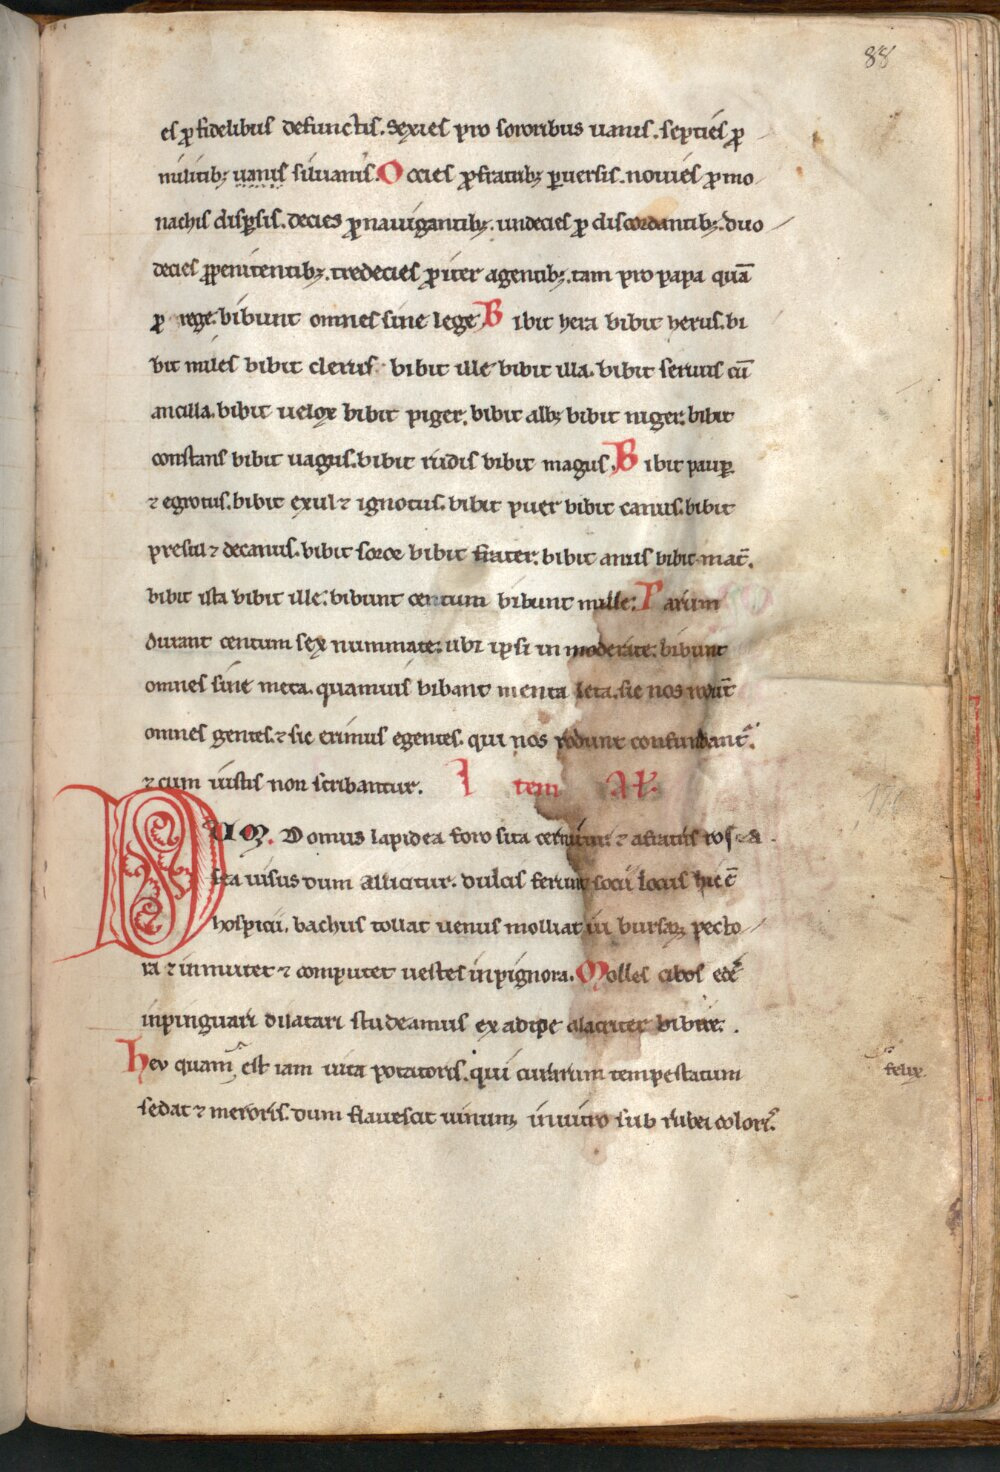 88
es ꝓ fidelibus defunctis. Sexies pro sororibus uanis. septies ꝓ
militibꝫ uanis siluanis. Octies ꝓ fratribꝫ ꝑuersis. nouies ꝓ mo
nachis disꝑsis. decies ꝓ nauigantibꝫ. undecies ꝓ discordantibꝫ. duo
decies ꝓ penitentibꝫ. tredecies ꝓ iter agentibꝫ. tam pro papa quā
ꝓ rege. bibunt omnes sine lege Bibit hera bibit herus. bi
bit miles bibit clerus. bibit ille bibit illa. bibit seruus cū
ancilla. bibit uelox bibit piger. bibit albꝫ bibit niger. bibit
constans bibit uagus. bibit rudis bibit magus. Bibit pauꝑ
⁊ egrotus. bibit exul ⁊ ignotus. bibit puer bibit canus. bibit
presul ⁊ decanus. bibit soror bibit frater. bibit anus bibit mat̄.
bibit ista bibit ille. bibunt centum bibunt mille. Parum
durant centum sex nummate. ubi ipsi in moderate. bibunt
omnes sine meta. quamuis bibant menta leta. sic nos rodūt
omnes gentes. ⁊ sic erimus egentes. qui nos rodunt confundant᷑.
⁊ cum iustis non scribantur. Item Al᷑.
DUM. Domus lapidea foro sita cernitur ⁊ a fratris ros⁊a
sea uisus dum allicitur. dulcis ferunt socii locus hic ē
hospicii. bachus tollat uenus molliat ui bursaꝝ pecto
ra ⁊ inmutet ⁊ computet uestes in pignora. Molles cibos edē
inpinguari dilatari studeamus ex adipe alacriter bibere.
Hev quam est iam uita potatoris. qui curarum tempestatum
felix.
sedat ⁊ meroris. dum flauescit uinum in uitro sub rubei coloris.